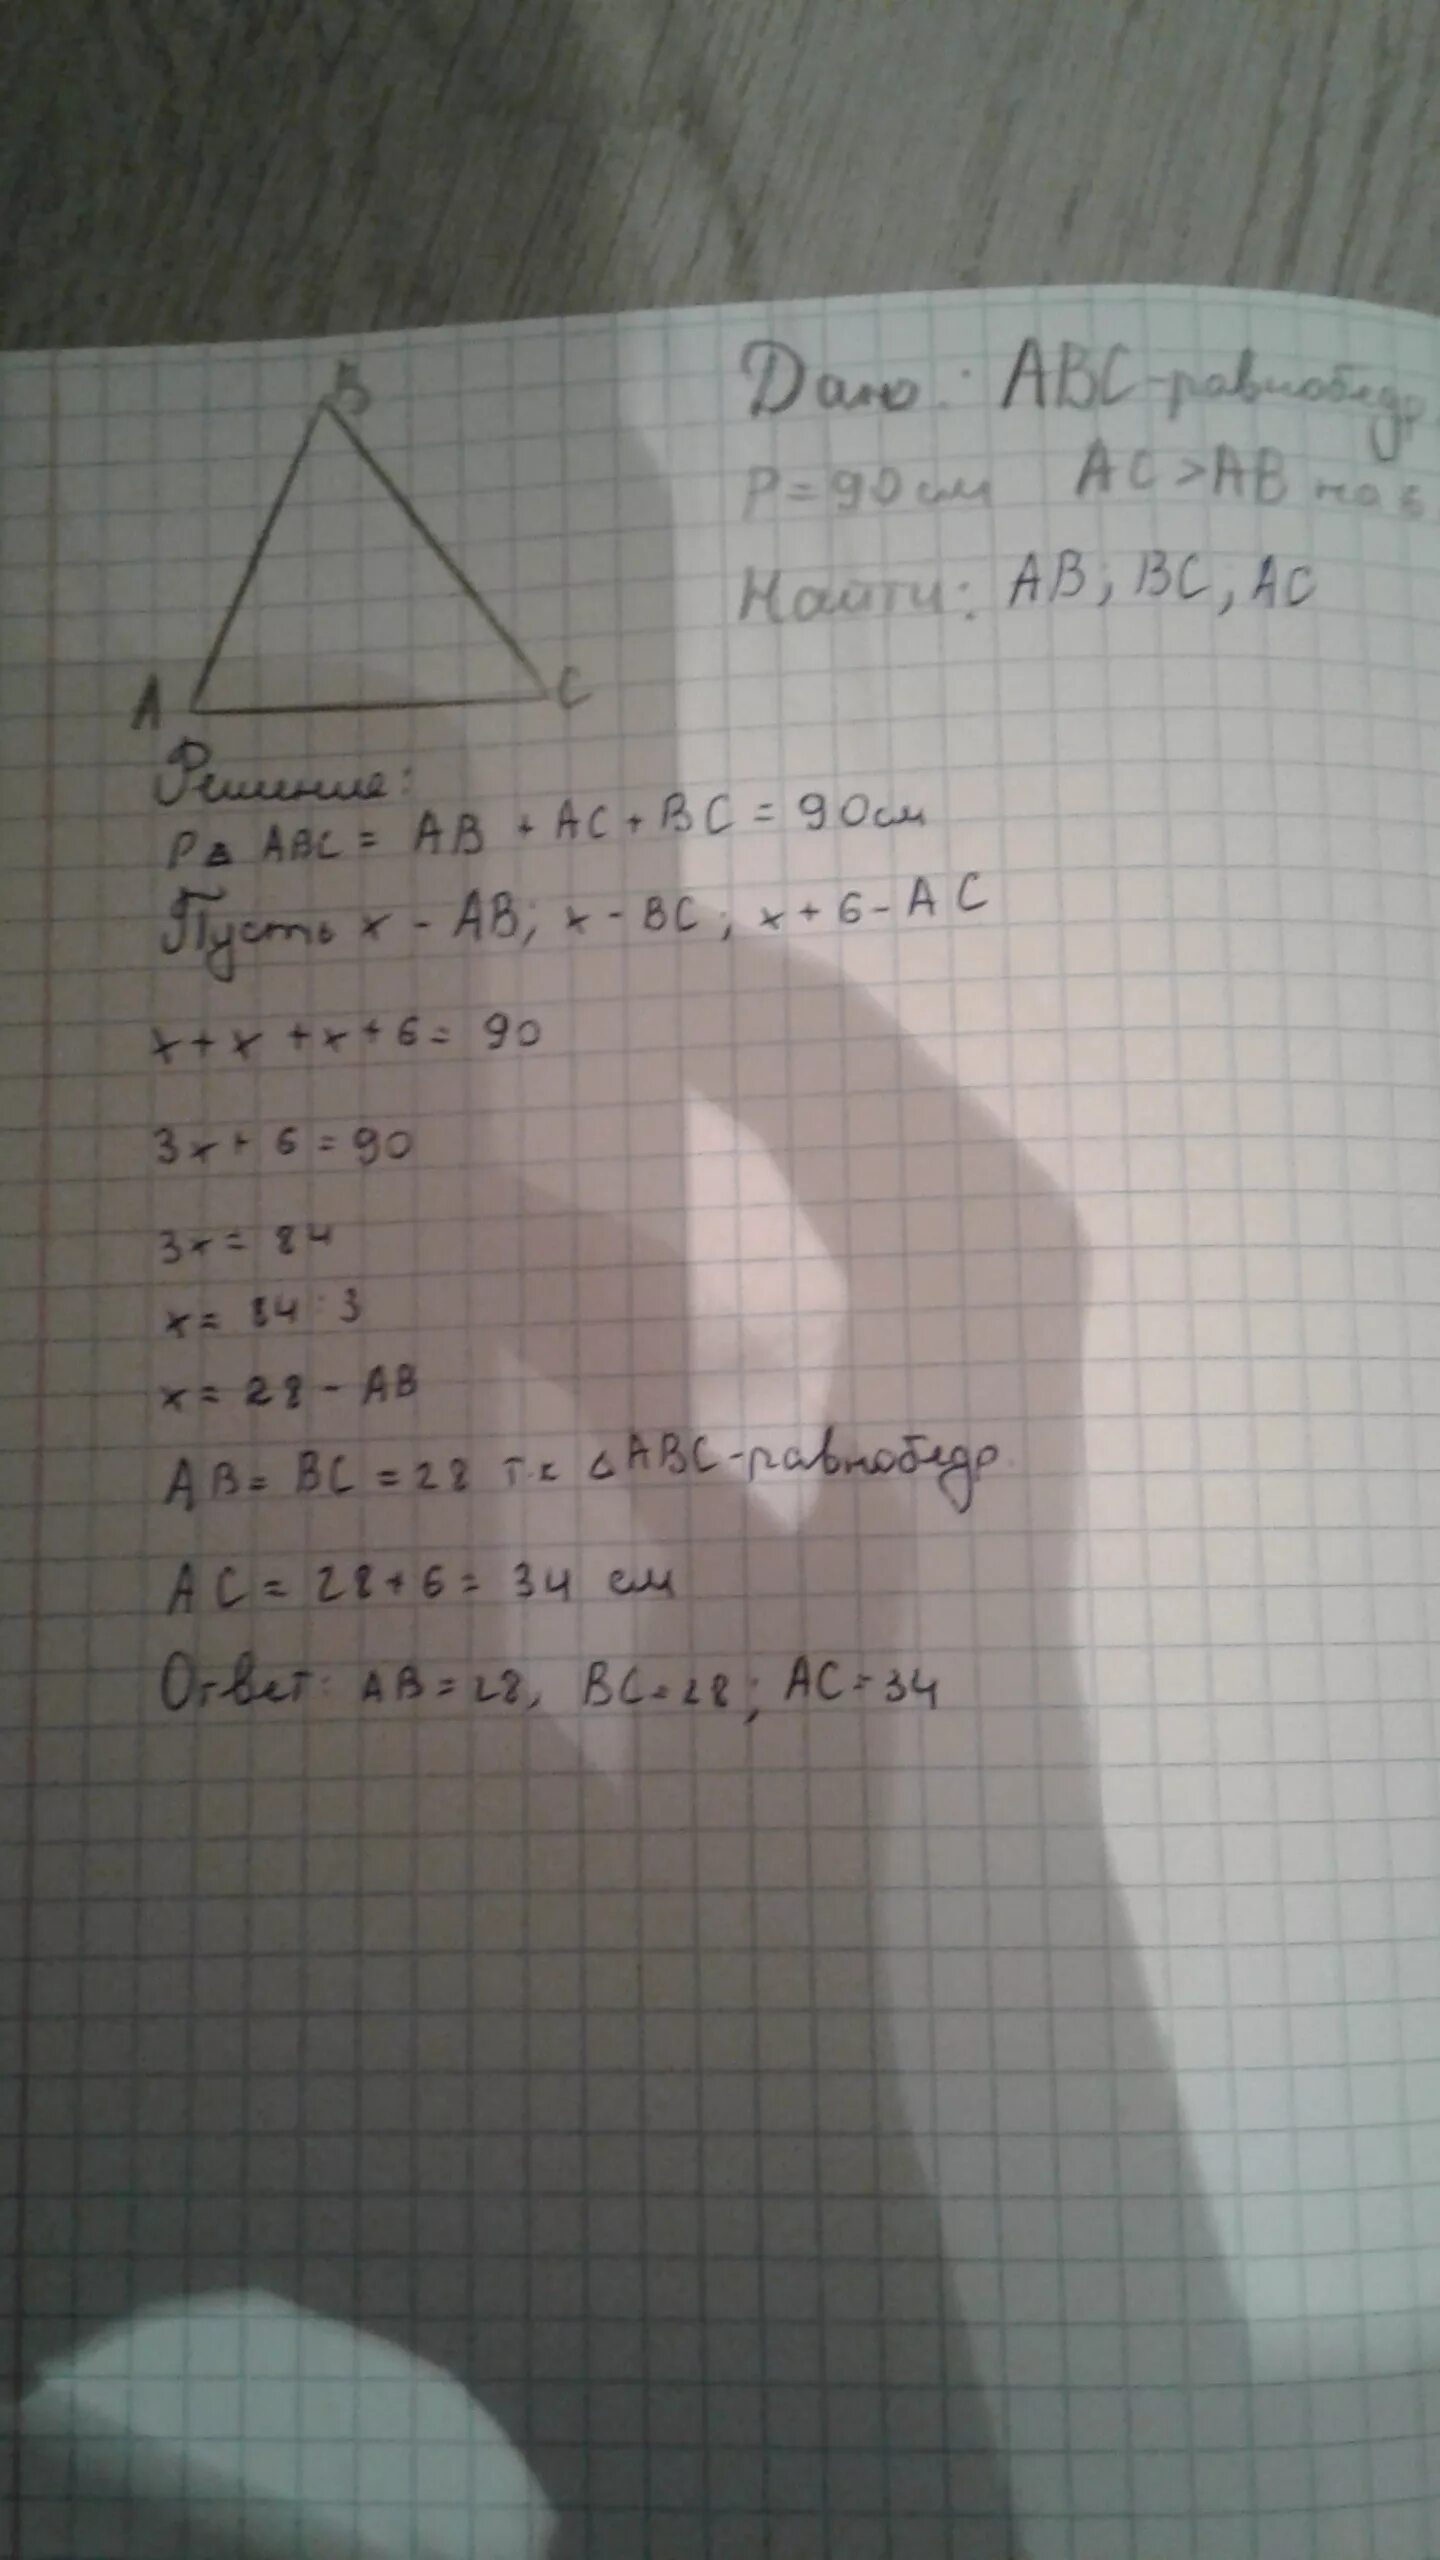 B
A
C
Дано: ABC-равнобедр.
P=90см AC>AB на 6
Найти: AB; BC; AC
Решение:
P△ ABC = AB + AC + BC = 90см
Пусть x - AB; x - BC; x + 6 - AC
x + x + x + 6 = 90
3x + 6 = 90
3x = 84
x = 84 : 3
x = 28 - AB
AB = BC = 28 т.к △ABC-равнобедр.
AC = 28 + 6 = 34 см
Ответ: AB = 28, BC = 28; AC = 34